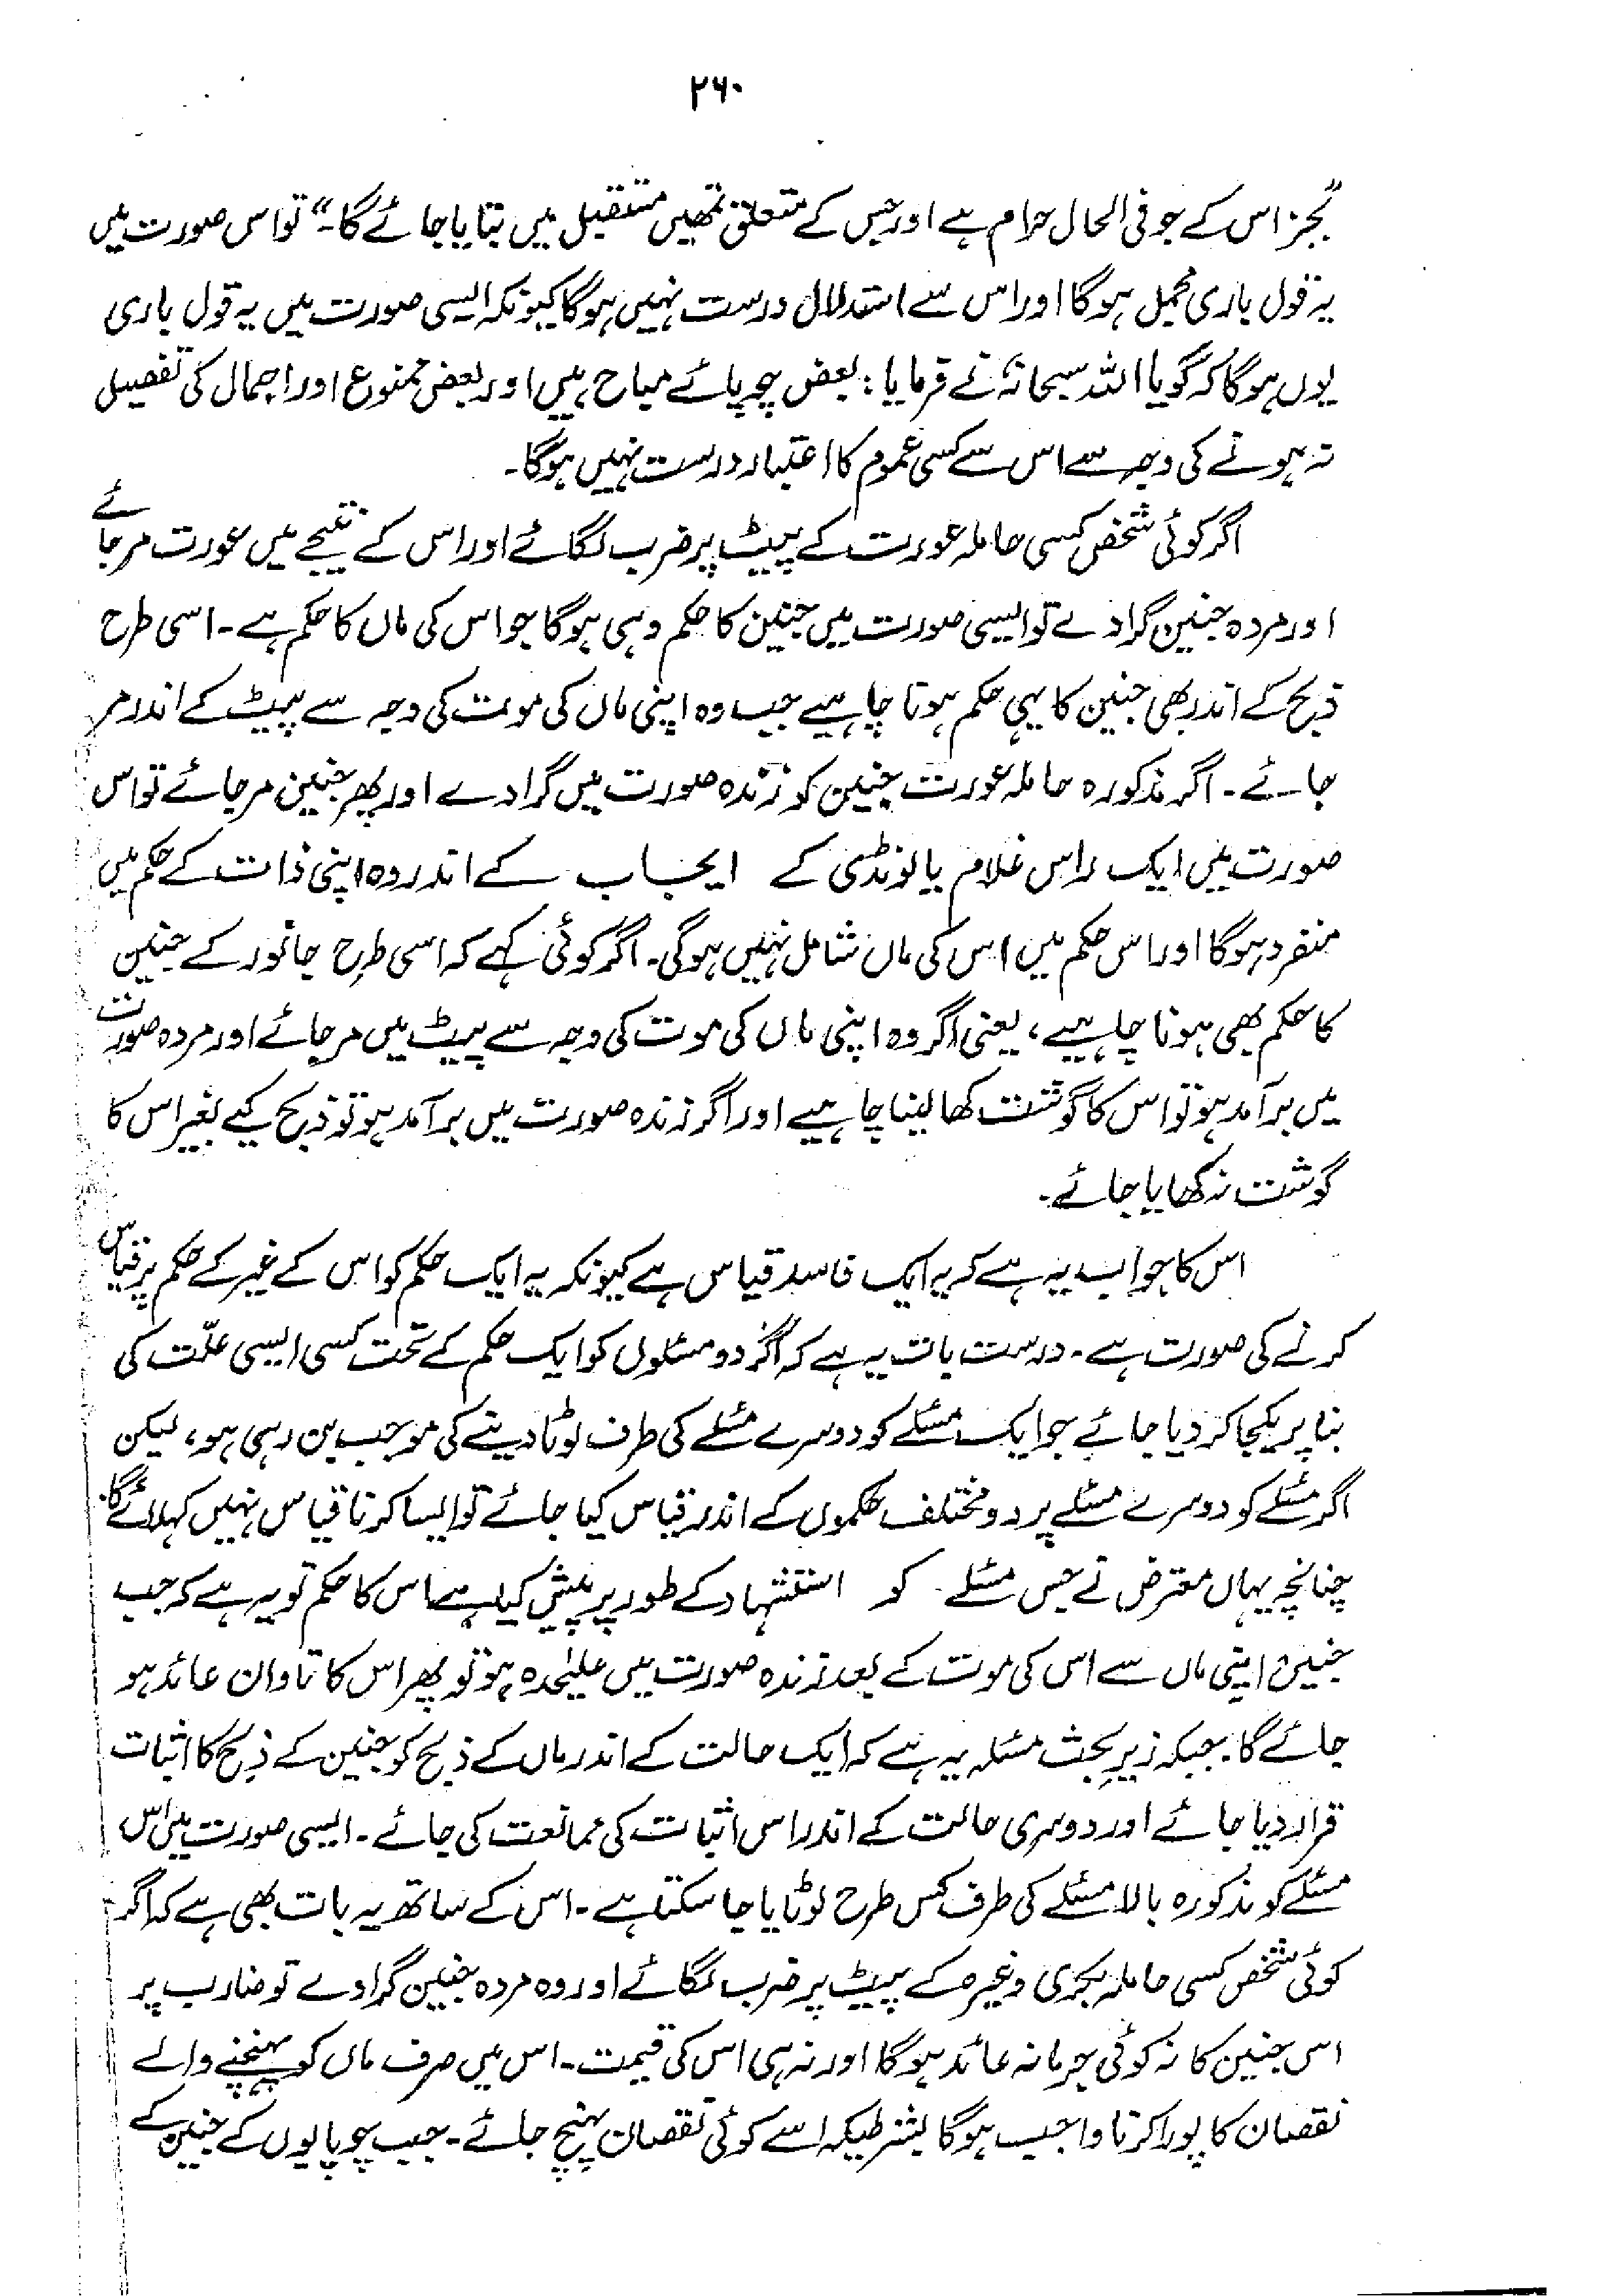 ۲۶۰
"بجز اس کے جو فی الحال حرام ہے اور جس کے متعلق تمھیں مستقبل میں بتایا جائے گا۔" تو اس صورت میں
یہ قول باری مجمل ہوگا اور اس سے استدلال درست نہیں ہوگا کیونکہ ایسی صورت میں یہ قول باری
یوں ہوگا کہ گویا اللہ سبحانہٗ نے فرمایا: بعض چوپائے مباح ہیں اور بعض ممنوع اور اجمال کی تفصیل
نہ ہونے کی وجہ سے اس سے کسی عموم کا اعتبار درست نہیں ہوگا۔
اگر کوئی شخص کسی حاملہ عورت کے پیٹ پر ضرب لگائے اور اس کے نتیجے میں عورت مر جائے
اور مردہ جنین گرا دے تو ایسی صورت میں جنین کا حکم وہی ہوگا جو اس کی ماں کا حکم ہے۔ اسی طرح
ذبح کے اندر بھی جنین کا یہی حکم ہونا چاہیے جب وہ اپنی ماں کی موت کی وجہ سے پیٹ کے اندر مر
جائے۔ اگر مذکورہ حاملہ عورت جنین کو زندہ صورت میں گرا دے اور پھر جنین مر جائے تو اس
صورت میں ایک راس غلام یا لونڈی کے ایجاب کے اندر وہ اپنی ذات کے حکم میں
منفرد ہوگا اور اس حکم میں اس کی ماں شامل نہیں ہوگی۔ اگر کوئی کہے کہ اسی طرح جانور کے جنین
کا حکم بھی ہونا چاہیے، یعنی اگر وہ اپنی ماں کی موت کی وجہ سے پیٹ میں مر جائے اور مردہ صورت
میں برآمد ہو تو اس کا گوشت کھا لینا چاہیے اور اگر زندہ صورت میں برآمد ہو تو ذبح کیے بغیر اس کا
گوشت نہ کھایا جائے۔
اس کا جواب یہ ہے کہ یہ ایک فاسد قیاس ہے کیونکہ یہ ایک حکم کو اس کے غیر کے حکم پر قیاس
کرنے کی صورت ہے۔ درست بات یہ ہے کہ اگر دو مسئلوں کو ایک حکم کے تحت کسی ایسی علّت کی
بنا پر یکجا کر دیا جائے جو ایک مسئلے کو دوسرے مسئلے کی طرف لوٹا دینے کی موجب بن رہی ہو، لیکن
اگر مسئلے کو دوسرے مسئلے پر دو مختلف حکموں کے اندر قیاس کیا جائے تو ایسا کرنا قیاس نہیں کہلائے گا۔
چنانچہ یہاں معترض نے جس مسئلے کو استشہاد کے طور پر پیش کیا ہے اس کا حکم تو یہ ہے کہ جب
جنین اپنی ماں سے اس کی موت کے بعد زندہ صورت میں علیحدہ ہو تو پھر اس کا تاوان عائد ہو
جائے گا۔ جبکہ زیرِ بحث مسئلہ یہ ہے کہ ایک حالت کے اندر ماں کے ذبح کو جنین کے ذبح کا اثبات
قرار دیا جائے اور دوسری حالت کے اندر اس اثبات کی ممانعت کی جائے۔ ایسی صورت میں اس
مسئلے کو مذکورہ بالا مسئلے کی طرف کس طرح لوٹایا جا سکتا ہے۔ اس کے ساتھ یہ بات بھی ہے کہ اگر
کوئی شخص کسی حاملہ بکری وغیرہ کے پیٹ پر ضرب لگائے اور وہ مردہ جنین گرا دے تو ضارب پر
اس جنین کا نہ کوئی جرمانہ عائد ہوگا اور نہ ہی اس کی قیمت۔ اس میں صرف ماں کو پہنچنے والے
نقصان کا پورا کرنا واجب ہوگا بشرطیکہ اسے کوئی نقصان پہنچ جائے۔ جب چوپایوں کے جنین کے